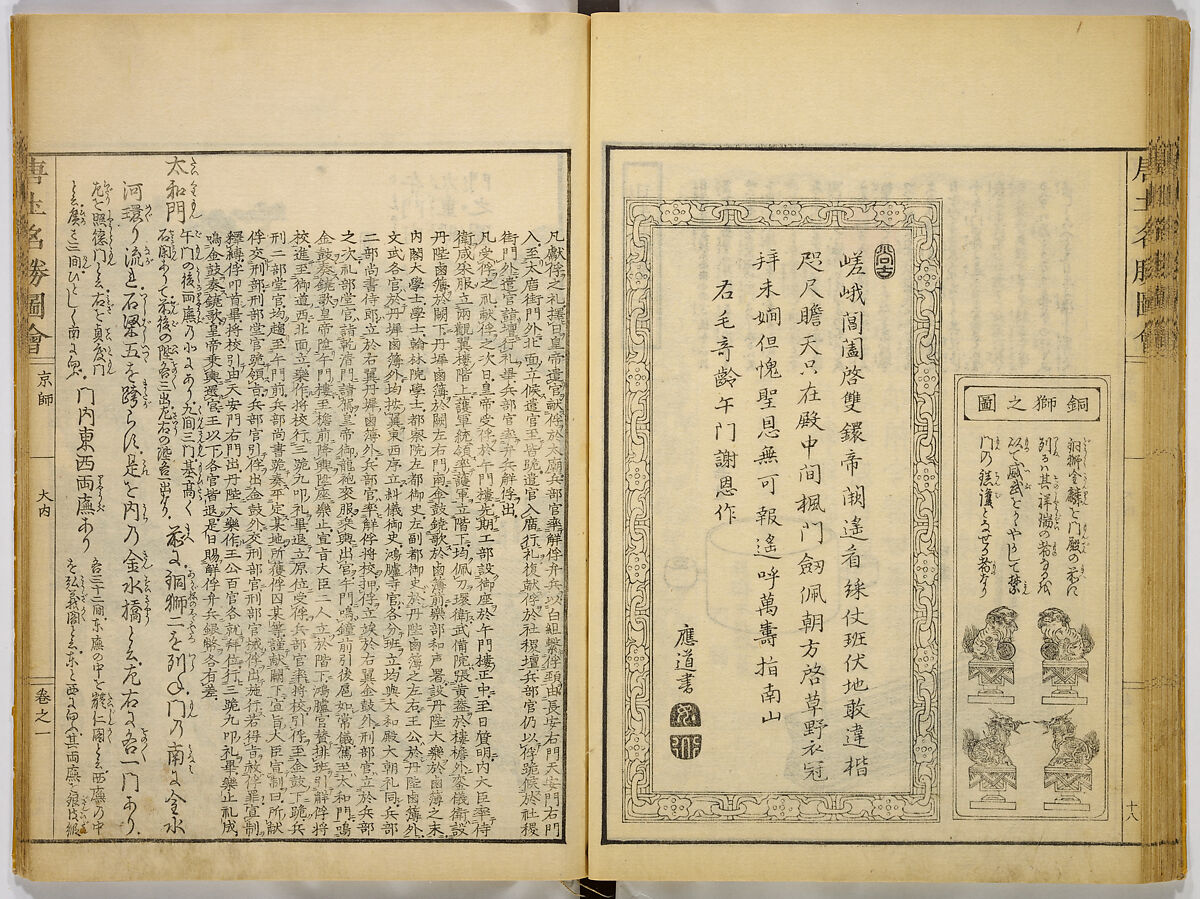 唐土名勝圖會
十八
銅獅之圖
列るハ其祥瑞の者なる故
門の鎮護となせる者なり
尚古
嵯峨閶闔啓雙鐶帝闕遙看綵仗班伏地敢違楷
咫尺瞻天只在殿中間楓門劔佩朝方啓草野衣冠
拜未嫺但愧聖恩無可報遙呼萬壽指南山
右毛奇齡午門謝恩作
應道書
凡獻俘之礼擇日皇帝遣官獻俘於太廟兵部官率解俘弁兵以白組繫俘頸由長安右門天安門右門
入至太庿街門外北面立候遣官至皆跪遣官入庿行礼復獻俘於社稷壇兵部官仍以俘跪候於社稷
街門外遣官詣壇行礼畢兵部官率弁兵解俘出
凡受俘之礼獻俘之次日皇帝受俘於午門樓先期工部設御座於午門樓正中至日質明内大臣率侍
衛咸采服立兩觀翼樓階上護軍統領率護軍立階下均佩刀環衛武備院張黄蓋於樓檐外鑾儀衛設
丹陛鹵簿於闕下丹墀鹵簿於闕左右門南金鼓鐃歌於鹵簿前樂部和声署設丹陛大樂於鹵簿之末
内閣大學士翰林院學士都察院左都御史左副都御史於丹陛鹵簿之左右王公於丹陛鹵簿外
文武各官於丹墀鹵簿外均按翼東西序立糾儀御史鴻臚寺官各分班立均與太和殿大朝礼同兵部
二部尚書侍郎立於右翼丹墀鹵簿外兵部官率解俘將校押俘立竢於右翼金鼓外刑部官立於兵部
之次礼部堂官詣乾清門請駕皇帝御龍袍衮服乗輿出宮午門鳴鐘前引後扈如常儀駕至太和門鳴
金鼓奏鐃歌皇帝陞午門樓至檐前降輿陞座樂止宣旨大臣二人立於階下鴻臚官賛排班引解俘將
校進至御道西北面立樂作將校行三跪九叩礼畢退立原位受俘兵部官率將校引俘至金鼓下跪兵
刑二部堂官均趨至午門前兵部尚書跪奏平定某地所獲俘囚某等謹獻闕下宣旨大臣宣制曰所獻
俘交刑部刑部堂官跪領旨兵部官引俘出金鼓外交刑部官刑部官械俘出施行若得旨赦俘罪宣制
釋縛俘叩首畢將校引由天安門右門出丹陛大樂作王公百官各就拜位行三跪九叩礼畢樂止礼成
鳴金鼓奏鐃歌皇帝乗輿還宮王以下各官皆退是日賜解俘弁兵銀幣各有差
太和門
午門の後両廡の北にあり九間三門基高く
石闌あり前後の陛各三出左右の陛各一出なり
前に銅獅二を列ぬ門の南に金水
河環り流れ石梁五を跨らす是を内の金水橋と云左右に各一門あり
左を照徳門と云右を貞度門
と云廣さ三間ひとしく南に向ふ
門内東西両廡あり
各三十二間東廡の中を體仁閣と云西廡の中
を弘義閣と云
唐土名勝圖會
京師
大内
卷之一